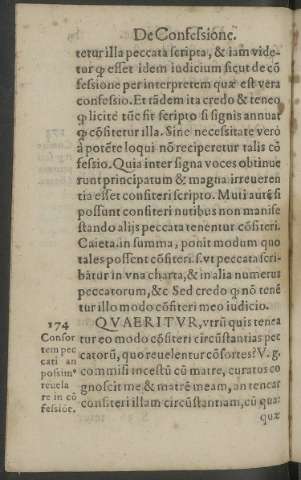 De Confessione.
tetur illa peccata scripta, & iam vide-
tur ꝙ esset idem iudicium sicut de cõ
fessione per interpretem quæ est vera
confessio. Et tãdem ita credo & teneo
ꝙ licitè tũc sit scripto si signis annuat
ꝙ cõfitetur illa. Sine necessitate verò
à potẽte loqui nõ reciperetur talis cõ
fessio. Quia inter signa voces obtinue
runt principatum & magna irreueren
tia esset confiteri scripto. Muti autẽ si
possunt confiteri nutibus non manife
stando alijs peccata tenentur cõfiteri.
Caieta. in summa, ponit modum quo
tales possent cõfiteri. s. vt peccata scri-
bãtur in vna charta, & in alia numerus
peccatorum, &c Sed credo ꝙ nõ tenẽ
tur illo modo cõfiteri meo iudicio.
174
Confor
tem pec
cati an
possum⁹
reuela
re in cõ
fessiõe.
QVAERITVR, vtrũ quis tenea
tur eo modo cõfiteri circũstantias pec
catorũ, quo reuelentur cõsortes? V. g.
commisi incestũ cũ matre, curatus co
gnoscit me & matrẽ meam, an tenear
confiteri illam circũstantiam, cũ qua:
quæ